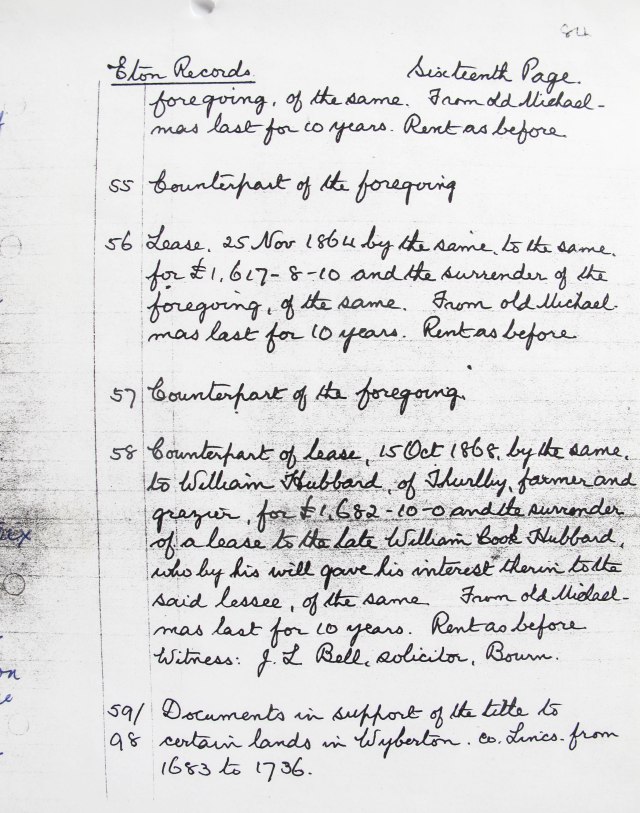 84
Eton Records    Sixteenth Page.
foregoing, of the same. From old Michael-
mas last for 10 years. Rent as before
55 Counterpart of the foregoing
56 Lease. 25 Nov 1864 by the same, to the same,
for £1,617-8-10 and the surrender of the
foregoing, of the same. From old Michael-
mas last for 10 years. Rent as before
57 Counterpart of the foregoing.
58 Counterpart of lease, 15 Oct 1868, by the same,
to William Hubbard, of Thurlby, farmer and
grazier, for £1,682-10-0 and the surrender
of a lease to the late William Cook Hubbard,
who by his will gave his interest therin to the
said lessee, of the same From old Michael-
mas last for 10 years. Rent as before
Witness: J. L Bell, solicitor, Bourn.
59/ Documents in support of the title to
98 certain lands in Wyberton. co. Lincs. from
1683 to 1736.